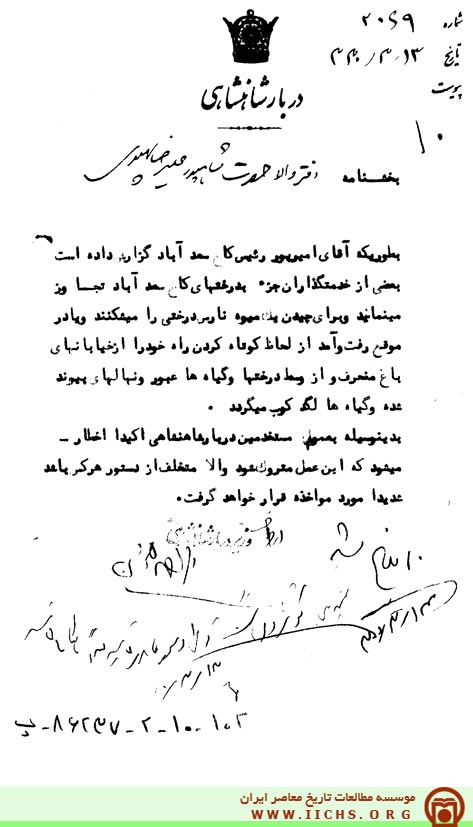 شماره ۲۰۶۹
تاریخ ۳۴۰/۳/۱۳
پیوست
دربار شاهنشاهی
۱۰
بخشنامه دفتر والاحضرت شاهپور علیرضا پهلوی
بطوریکه آقای امیرپور رئیس کاخ سعد آباد گزارش داده است
بعضی از خدمتگذاران جزء بدرختهای کاخ سعد آباد تجا وز
مینمایند وبرای چیدن یک میوه نارس درختی را میشکنند ویادر
موقع رفت وآمد از لحاظ کوتاه کردن راه خودرا ازخیابانهای
باغ منحرف و از وسط درختها وگیاه ها عبور ونهالهای پیوند
شده وگیاه ها لگد کوب میگردد .
بدینوسیله بعموم مستخدمین دربارشاهنشاهی اکیدا اخطار ـ
میشود که این عمل متروک شود والا متخلف از دستور هرکس باشد
شدیدا مورد مواخذه قرار خواهد گرفت.
ابلاغ شد
۱۰۳-۱۰-۲-۸۶۲۳۷-پ
موسسه مطالعات تاریخ معاصر ایران
WWW.IICHS.ORG